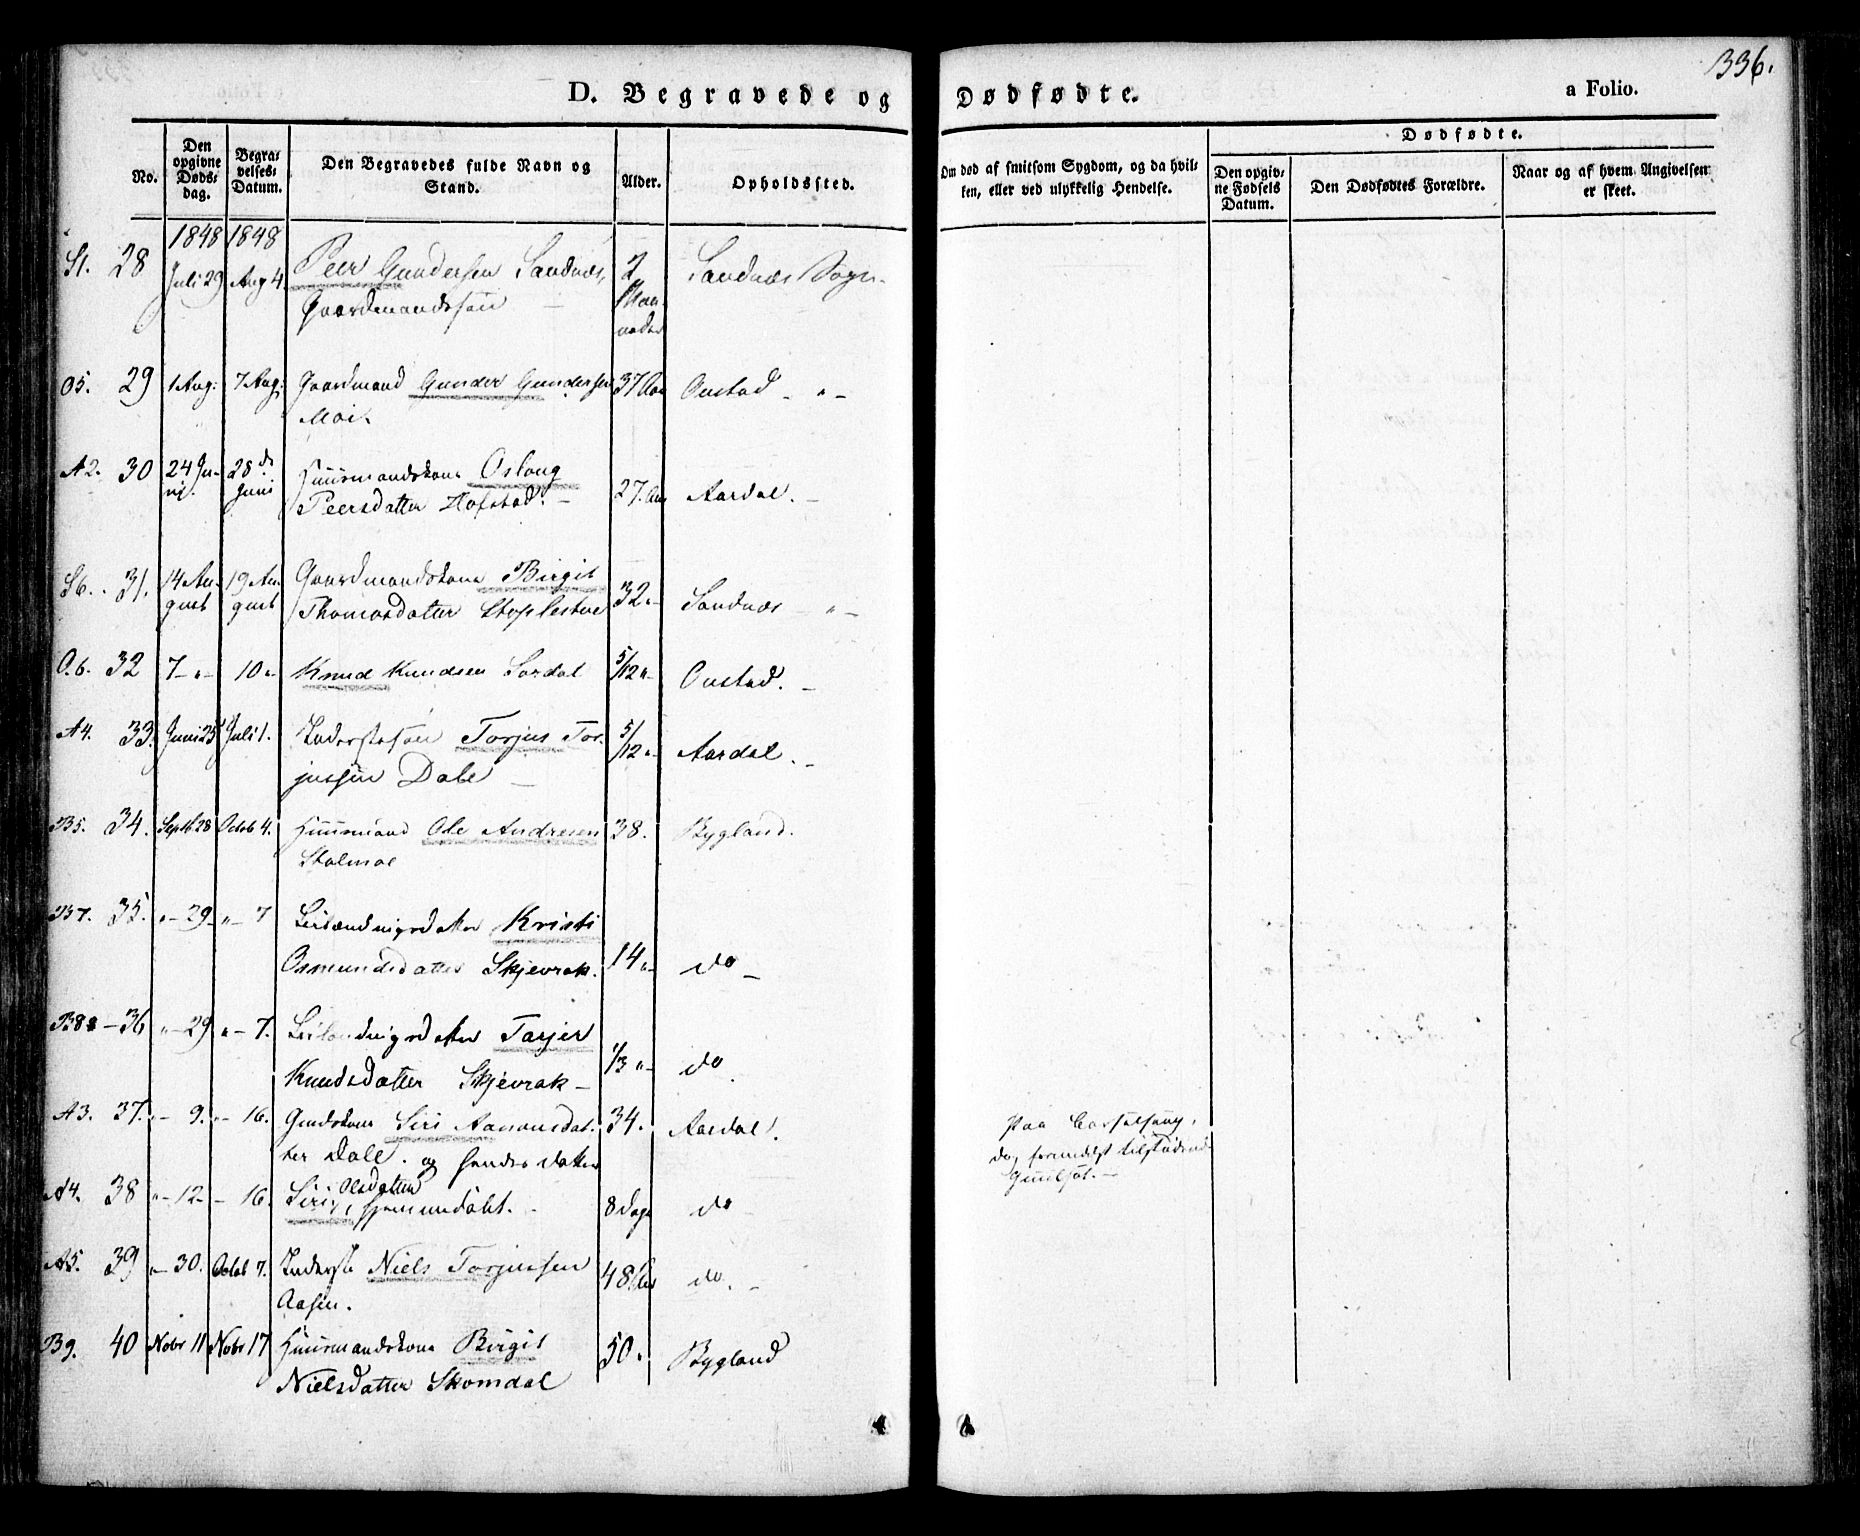 336.
D. Begravede og Dødfødte.
a Folio.
No.
Den opgivne Døds-dag.
Begra-velses-Datum.
Den Begravedes fulde Navn og Stand.
Alder.
Opholdssted.
Om død af smitsom Sygdom, og da hvil-ken, eller ved ulykkelig Hendelse.
Dødfødte.
Den opgiv-ne Fødsels Datum.
Den Dødfødtes Forældre.
Naar og af hvem Angivelsen er skeet.
1848 1848
S1. 28 Juli 29 Aug 4. Peer Gundersen Sandnæs, 2 Maa- Sandnæs Sogn.
Gaardmandssøn — neder
O5. 29 1 Aug: 7 Aug: Gaardmand Gunder Gundersen 37 Aar Oustad - " -
Moi.
A2. 30 24 Ju- 28 de Huusmandskone Oslaug
nj. Juni Peersdatter Hofstad. — 27. Aar Aardal. -
S6. 31. 14 Au- 19 Au- Gaardmandskone Birgit
gust gust Thomasdatter Stoplestue 32 " - Sandnæs - " -
O.6. 32 7 - " - 10 " Knud Knudsen Sordal 5/12 " - Oustad. -
A4. 33. Juni 25 Juli 1. Inderstesøn Torjus Tor- 5/12 " - Aardal. -
jussen Dale —
B5. 34. Septb 28 Octob 4. Huusmand Ole Andresen 38. Bygland.
Stalmoe
B7. 35. " - 29 - " - 7 Leilændingsdatter Kristi
Osmundsdatter Skjevrak. 14 " - do -
B8 - 36 " - 29 " - 7. Leilændingsdatter Tarjer
Knudsdatter Skjevrak - 1/3 " - do
A3. 37. " - 9. " - 16. Siri Aanonsdat- 34. Aardal. Paa Barselseng,
ter Dale. og hendes datter do, formedelst tilstødende
Guulsot. —
A4. 38 " - 12 - - 16. Siri, Olsdatter hjemmedøbt. 8 Dage do
A5. 39 " - 30. Octob 7. Inderste Niels Torjussen 48. Aar do. -
Aasen.
B9. 40 Nobr 11 Nobr 17 Huusmandskone Birgit 50. " Bygland
Nielsdatter Skomdal